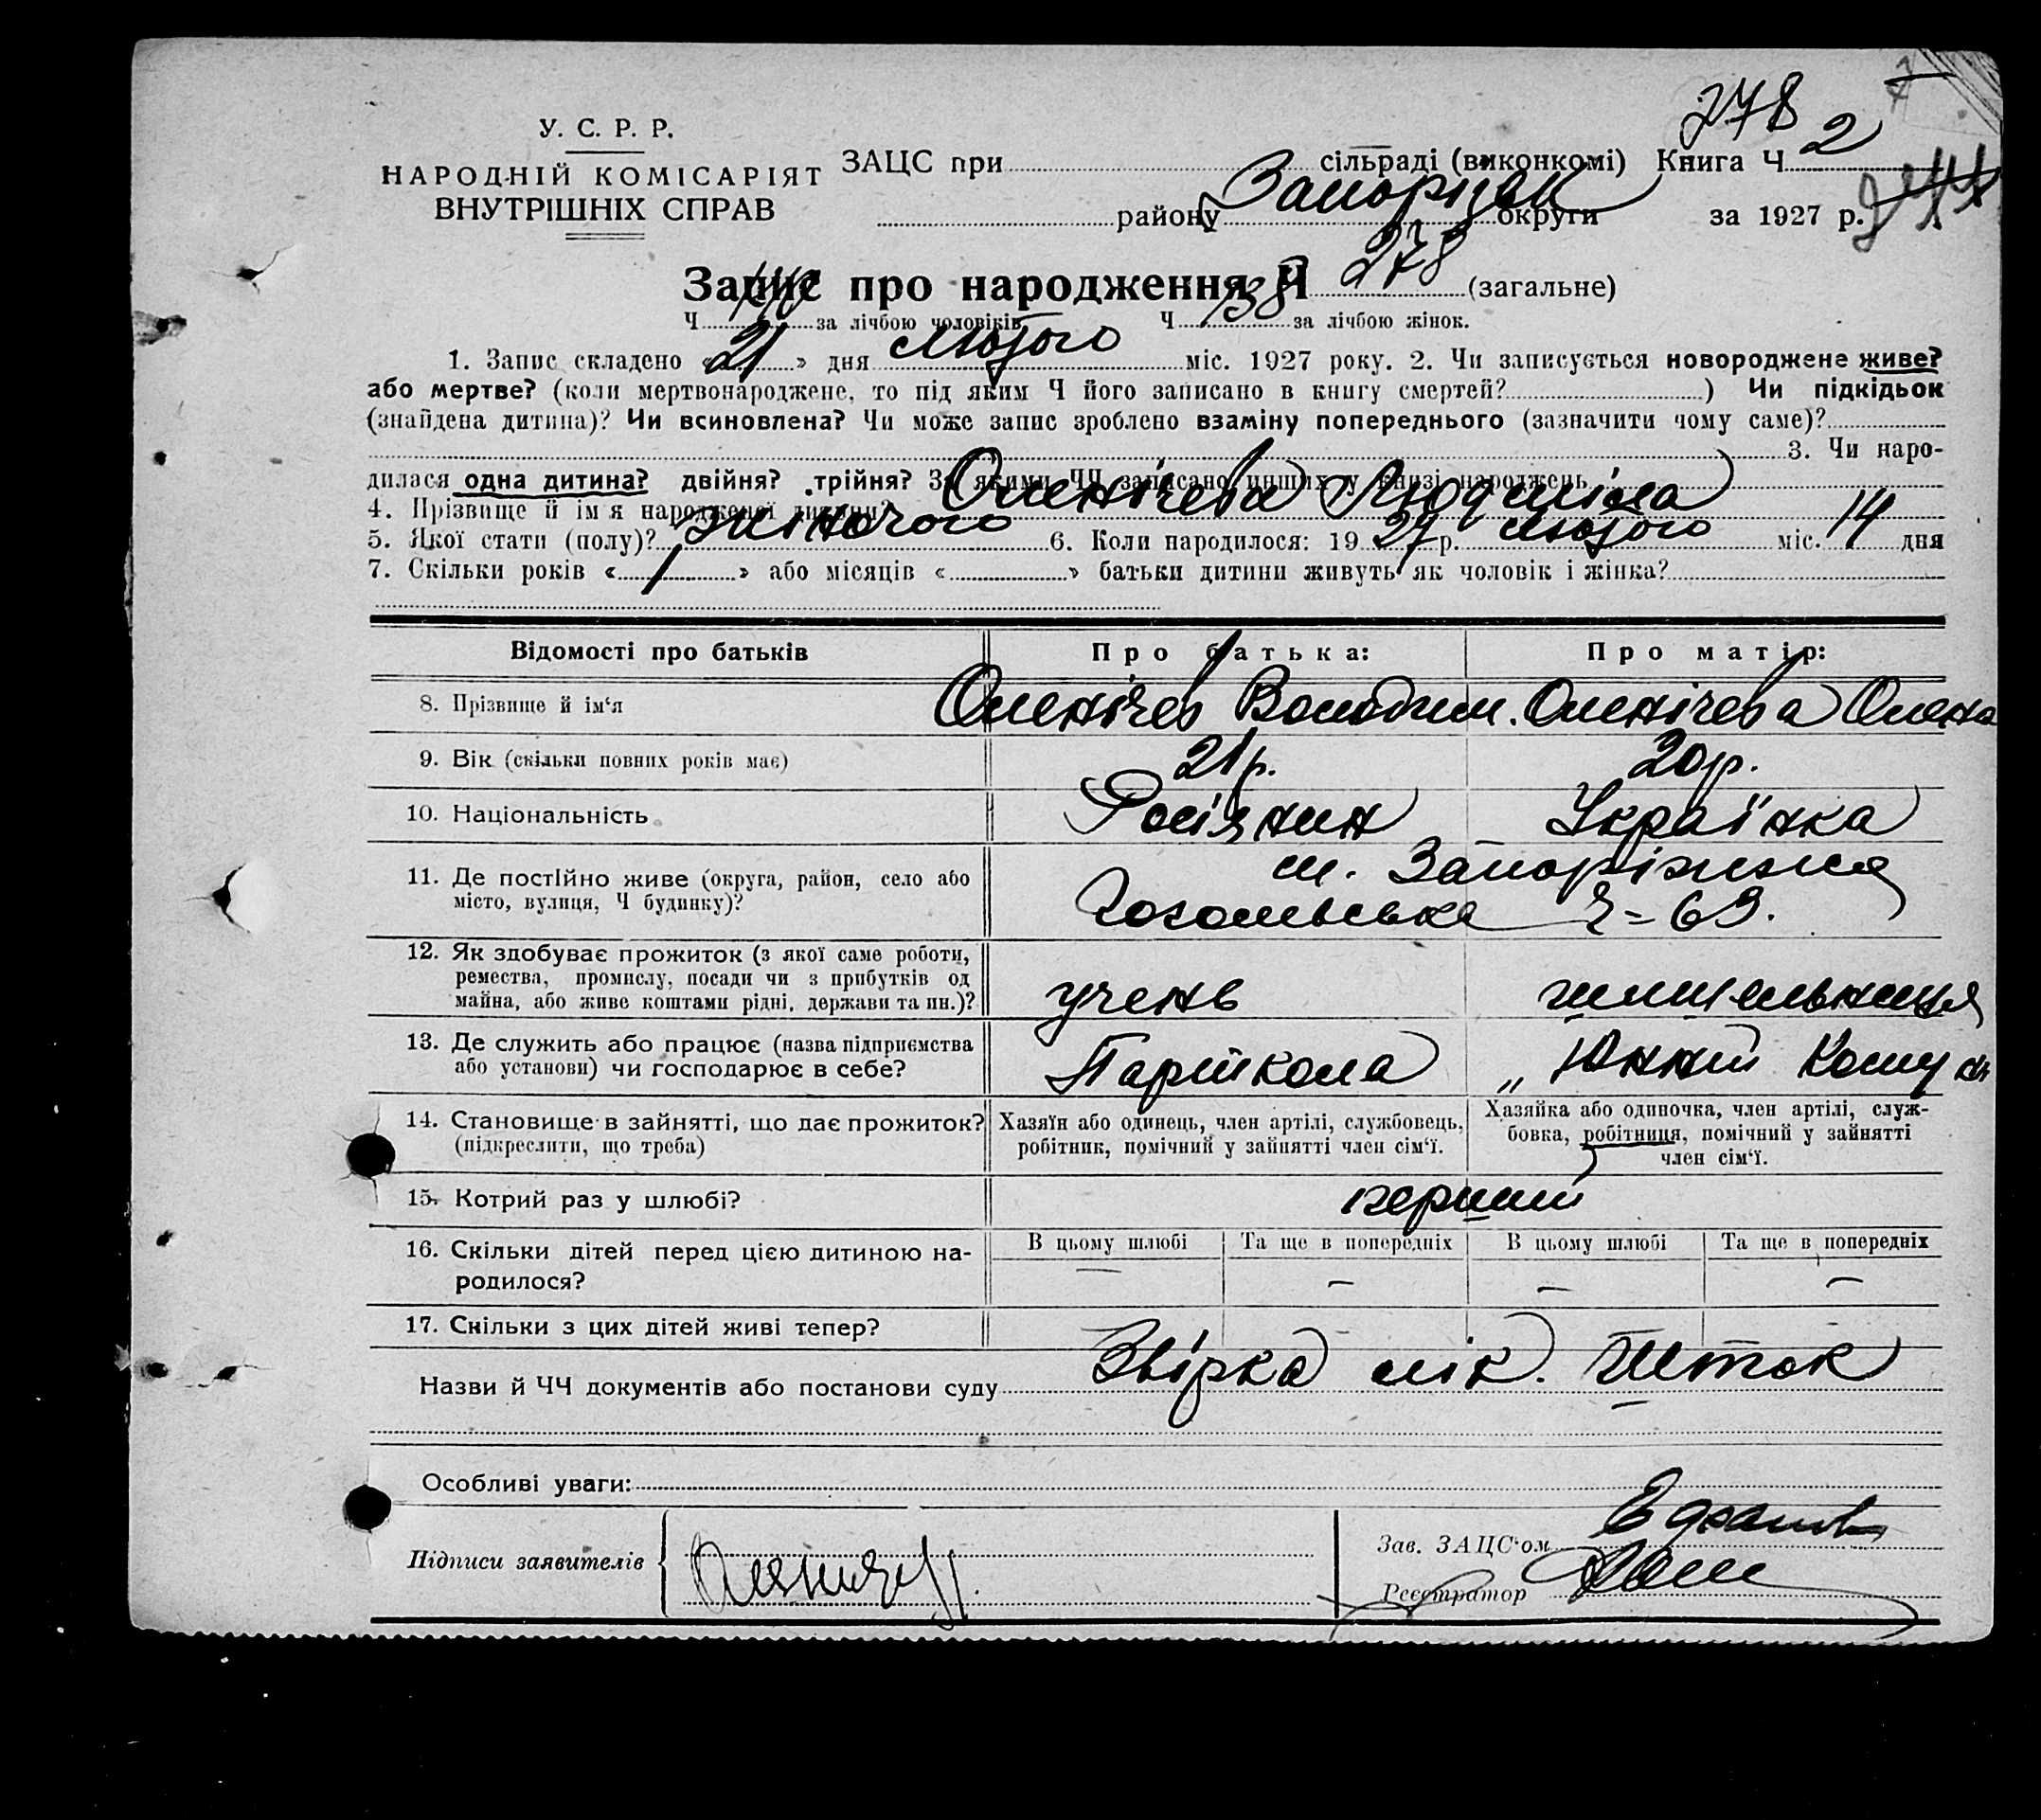 278
У. С. Р. Р.
НАРОДНІЙ КОМІСАРІЯТ
ВНУТРІШНІХ СПРАВ
ЗАЦС при сільраді (виконкомі) Книга Ч 2
району Запорізьк округи за 1927 р.
Запис про народження Ч 278 (загальне)
Ч за лічбою чоловіків Ч 138 за лічбою жінок.
1. Запис складено «21» дня Лютого міс. 1927 року. 2. Чи записується новороджене живе?
або мертве? (коли мертвонароджене, то під яким Ч його записано в книгу смертей? ) Чи підкідьок
(знайдена дитина)? Чи всиновлена? Чи може запис зроблено взаміну попереднього (зазначити чому саме)?
3. Чи наро-
дилася одна дитина? двійня? трійня? За якими ЧЧ записано инших у книзі народжень
4. Прізвище й ім'я народженої дитини? Оленічева Людміла
5. Якої стати (полу)? жіночого 6. Коли народилося: 1927 р. Лютого міс. 14 дня
7. Скільки років «1» або місяців « » батьки дитини живуть як чоловік і жінка?
Відомості про батьків Про батька: Про матір:
8. Прізвище й ім'я Оленічев Володим. Оленічева Олена
9. Вік (скільки повних років має) 21 р. 20 р.
10. Національність Росіянин Українка
11. Де постійно живе (округа, район, село або м. Запоріжжя
місто, вулиця, Ч будинку)? Гогольвська Ч = 69.
12. Як здобуває прожиток (з якої саме роботи,
ремества, промислу, посади чи з прибутків од
майна, або живе коштами рідні, держави та ин.)? учень
13. Де служить або працює (назва підприємства
або установи) чи господарює в себе? Партшкола „Юний Комун
14. Становище в зайнятті, що дає прожиток? Хазяїн або одинець, член артілі, службовець, Хазяйка або одиночка, член артілі, служ-
(підкреслити, що треба) робітник, помічний у зайнятті член сім'ї. бовка, робітниця, помічний у зайнятті
член сім'ї.
15. Котрий раз у шлюбі? перший
16. Скільки дітей перед цією дитиною на- В цьому шлюбі Та ще в попередніх В цьому шлюбі Та ще в попередніх
родилося? — — — —
17. Скільки з цих дітей живі тепер?
Назви й ЧЧ документів або постанови суду Звірка лік. Шток
Особливі уваги:
Підписи заявителів
Зав. ЗАЦС'ом
Реєстратор